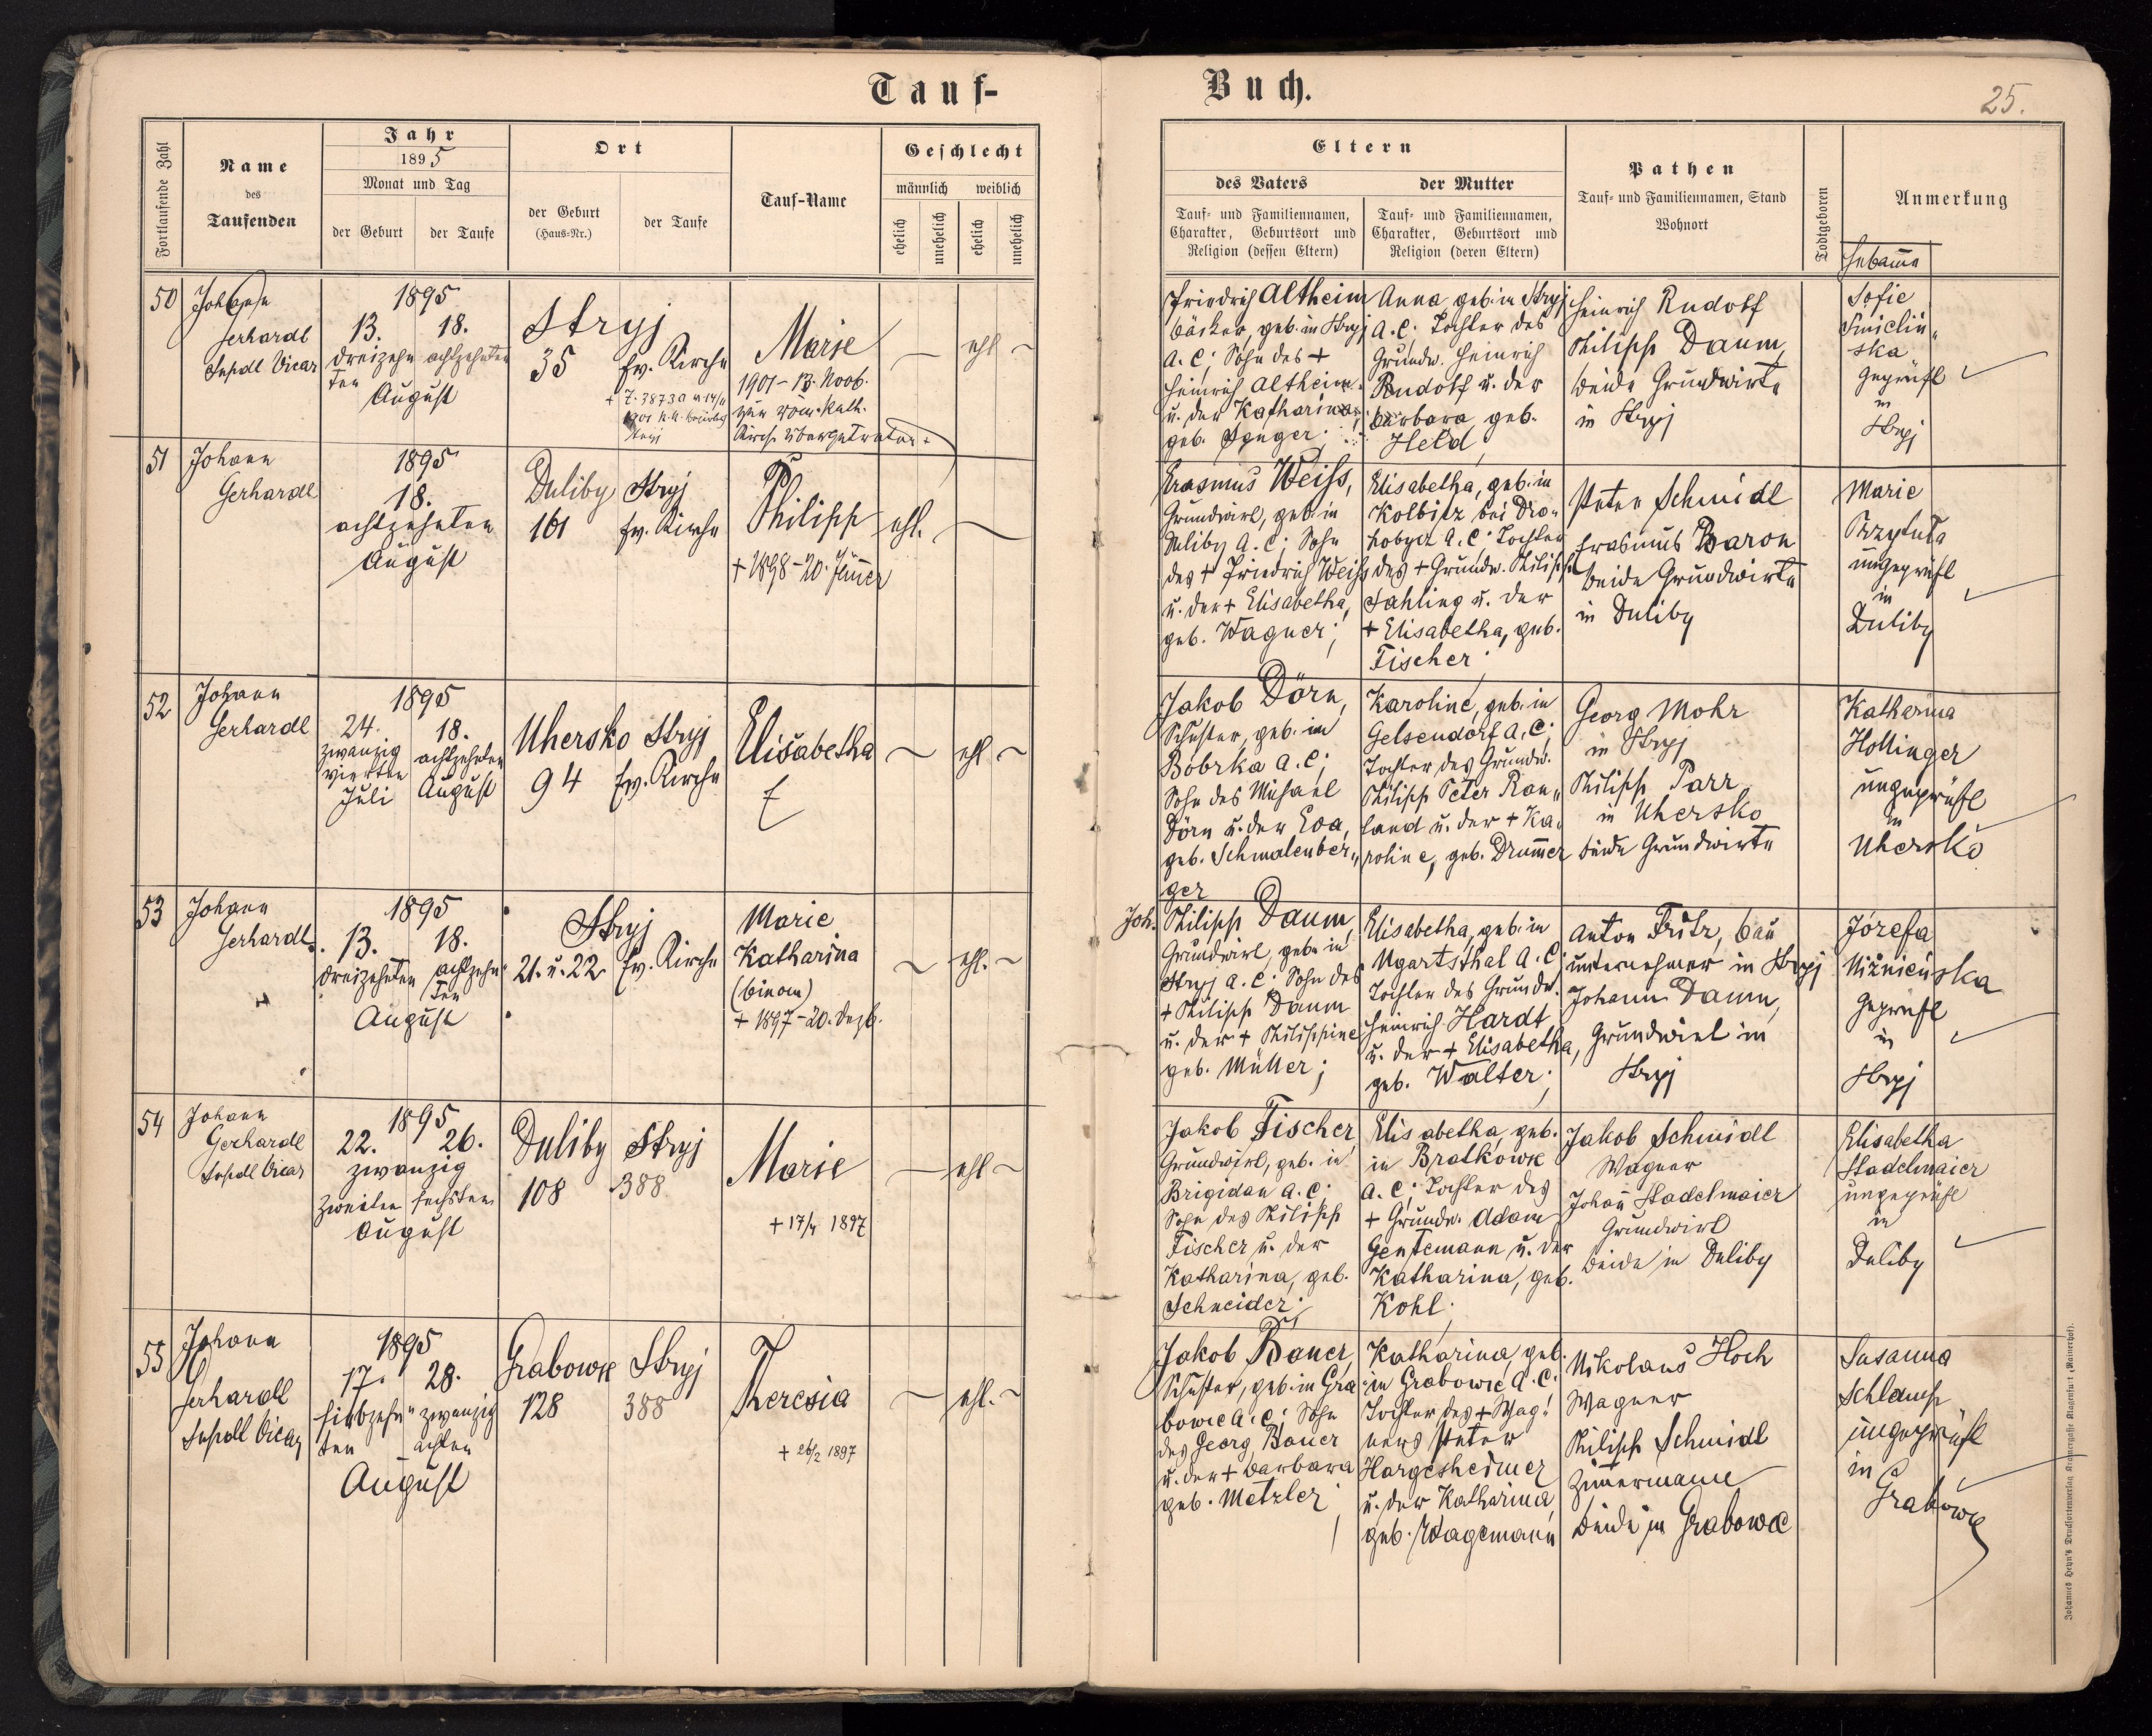 Tauf-
Buch.
25.
Fortlaufende Zahl
Name
des
Taufenden
Jahr
1895
Monat und Tag
der Geburt
der Taufe
Ort
der Geburt
(Haus-Nr.)
der Taufe
Tauf-Name
Geschlecht
männlich
weiblich
ehelich
unehelich
ehelich
unehelich
Eltern
des Vaters
der Mutter
Tauf- und Familiennamen,
Charakter, Geburtsort und
Religion (dessen Eltern)
Tauf- und Familiennamen,
Charakter, Geburtsort und
Religion (deren Eltern)
Pathen
Tauf- und Familiennamen, Stand
Wohnort
Todtgeboren
Anmerkung
Hebamme
50
Johann
Gerhardt
Vicar
1895
13.
18.
dreizehn
achtzehnten
ten
August
Stryj
35
Ev. Kirche
Marie
1901 - 13. Novb.
zur röm. kath.
Kirche übergetreten
—
ehl
Friedrich Altheim
Bäcker, geb. in Stryj
A. C; Sohn des +
Heinrich Altheim
u. der Katharina,
geb.
Anna geb. in Stryj
A. C; Tochter des
Grundw. Heinrich
Rudolf u. der
Barbara, geb.
Held
Heinrich Rudolf
Philipp Daum,
beide Grundwirte
in Stryj
Sofie
ska
geprüft
in
Stryj
51
Johann
Gerhardt
1895
18.
achtzehnten
August
Duliby
161
Stryj
Ev. Kirche
Philipp
+ 1898 - 20. Jänner
ehl.
—
Erasmus Weiss,
Grundwirt, geb. in
Duliby A. C; Sohn
des + Friedrich Weiss
u. der + Elisabetha,
geb. Wagner;
Elisabetha, geb. in
Kolbitz bei Dro-
hobycz A. C; Tochter
des + Grundw. Philipp
Jahling u. der
+ Elisabetha, geb.
Fischer
Peter Schmidt
Erasmus Baron
beide Grundwirte
in Duliby
Marie
ungeprüft
in
Duliby
52
Johann
Gerhardt
1895
24.
18.
zwanzig
achtzehnten
vierten
Juli
August
Uhersko
94
Stryj
Ev. Kirche
Elisabetha
—
ehl
Jakob Dörn,
Schuster, geb. in
Bóbrka A. C;
Sohn des Michael
Dörn u. der Eva,
geb. Schmalenber-
ger
Karoline, geb. in
Gelsendorf A. C;
Tochter des Grundw.
Philipp Peter Rau-
land u. der + Ka-
roline, geb. Drummer
Georg Mohr
in Stryj
Philipp Parr
in Uhersko
beide Grundwirte
Katharina
Hollinger
ungeprüft
in
Uhersko
53
Johann
Gerhardt
1895
13.
18.
dreizehnten
achtzehn-
ten
August
Stryj
21. u. 22
Ev. Kirche
Marie
Katharina
(binom)
+ 1897 - 20. Dezb.
ehl.
Joh. Philipp Daum,
Grundwirt, geb. in
Stryj A. C; Sohn des
+ Philipp Daum
u. der + Philippine
geb. Müller;
Elisabetha, geb. in
Ugartsthal A. C
Tochter des Grundw.
Heinrich Hardt
u. der + Elisabetha,
geb. Walter;
Anton Fritz, Bau
unternehmer in Stryj
Johann Daum,
Grundwirt in
Stryj
Józefa
Niżnieńska
geprüft
in
Stryj
54
Johann
Gerhardt
Vicar
1895
22.
26.
zwanzig
zweiten
sechsten
August
Duliby
108
Stryj
388
Marie
+ 17/4 1897
—
ehl
Jakob Fischer
Grundwirt, geb. in
Brigidau A. C;
Sohn des Philipp
Fischer u. der
Katharina, geb.
Schneider;
Elisabetha, geb.
in Bratkowce
A. C; Tochter des
+ Grundw. Adam
Gentemann u. der
Katharina, geb.
Kohl;
Jakob Schmidt
Wagner
Johann Stadelmaier
Grundwirt
beide in Duliby
Elisabetha
Stadelmaier
ungeprüft
in
Duliby
55
Johann
Gerhardt
Vicar
1895
17.
28.
siebzehn-
zwanzig
ten
achten
August
Grabowce
128
Stryj
388
Theresia
+ 26/2 1897
ehl.
Jakob Bauer,
Schuster, geb. in Gra
bowce A. C; Sohn
des Georg Bauer
u. der + Barbara
geb. Metzler;
Katharina, geb.
in Grabowce A. C.
Tochter des + Wag-
ners Peter
Hargesheimer
u. der Katharina,
geb. Wagemann
Nikolaus Hoch
Wagner
Philipp Schmidt
Zimmermann
beide in Grabowce
Susanna
Schlamp
ungeprüft
in
Grabowce
Johannes Heyn's Drucksortenverlag Kramergasse Klagenfurt (Mainerhof).